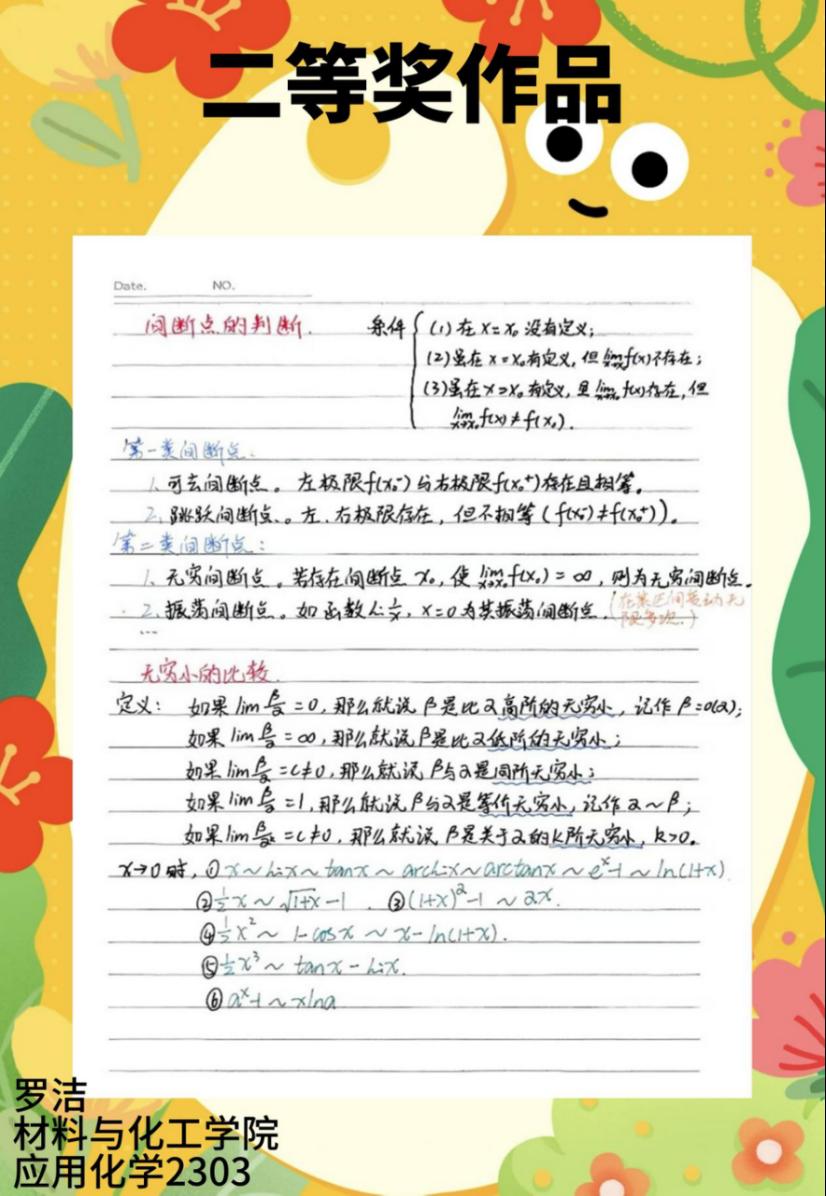 二等奖作品
Date. NO.
间断点的判断. 条件 { (1) 在 x = x₀ 没有定义;
(2) 虽在 x = x₀ 有定义, 但 lim_{x→x₀} f(x) 不存在;
(3) 虽在 x = x₀ 有定义, 且 lim_{x→x₀} f(x) 存在, 但
lim_{x→x₀} f(x) ≠ f(x₀).
第一类间断点:
1. 可去间断点。左极限 f(x₀⁻) 与右极限 f(x₀⁺) 存在且相等。
2. 跳跃间断点。左、右极限存在, 但不相等 (f(x₀⁻) ≠ f(x₀⁺))。
第二类间断点:
1. 无穷间断点。若存在间断点 x₀, 使 lim_{x→x₀} f(x₀) = ∞, 则为无穷间断点。
2. 振荡间断点。如函数 sin 1/x, x=0 为其振荡间断点. (在某区间变动无
限多次.)
...
无穷小的比较.
定义: 如果 lim β/α = 0, 那么就说 β 是比 α 高阶的无穷小, 记作 β = o(α);
如果 lim β/α = ∞, 那么就说 β 是比 α 低阶的无穷小;
如果 lim β/α = c ≠ 0, 那么就说 β 与 α 是同阶无穷小;
如果 lim β/α = 1, 那么就说 β 与 α 是等价无穷小, 记作 α ~ β;
如果 lim β/αᵏ = c ≠ 0, 那么就说 β 是关于 α 的 k 阶无穷小, k > 0.
x→0 时, ① x ~ sin x ~ tan x ~ arcsin x ~ arctan x ~ eˣ-1 ~ ln(1+x).
② 1/2 x ~ √(1+x) - 1. ③ (1+x)² - 1 ~ 2x.
④ 1/2 x² ~ 1 - cos x ~ x - ln(1+x).
⑤ 1/2 x³ ~ tan x - sin x.
⑥ aˣ-1 ~ x ln a
罗洁
材料与化工学院
应用化学2303